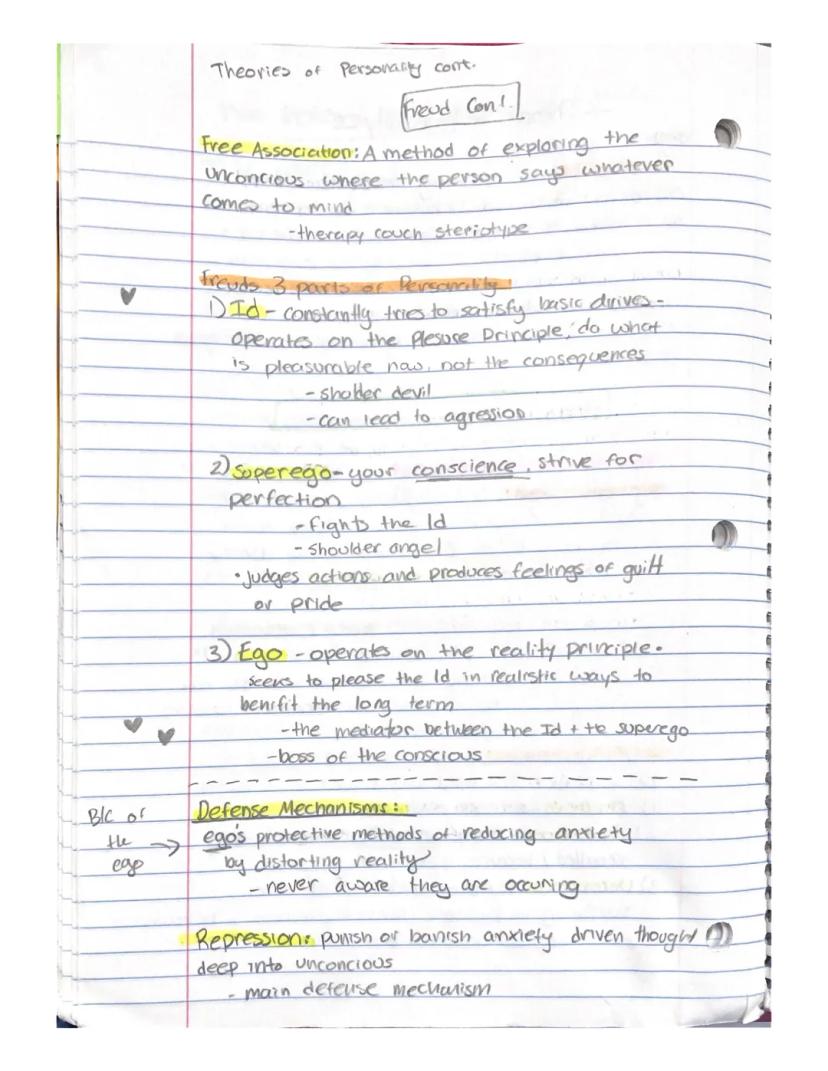 Theories of Personality cont.
Freud Con!.
Free Association: A method of exploring the
unconcious where the person says whatever
comes to mind
-therapy couch steriotype
Freuds 3 parts of Personality
1) Id - constantly tries to satisfy basic drives -
operates on the plesure Principle, do what
is pleasurable now, not the consequences
- sholder devil
- can lead to agression
2) Superego - your conscience, strive for
perfection
- fights the Id
- shoulder angel
• judges actions and produces feelings of guilt
or pride
3) Ego - operates on the reality principle.
seeks to please the Id in realistic ways to
benifit the long term
- the mediator between the Id + the superego
- boss of the conscious
Defense Mechanisms:
B/c of
the →
ego
ego's protective methods of reducing anxiety
by distorting reality
- never aware they are occuring
Repression: punish or banish anxiety driven thought
deep into unconcious
- main defense mechanism